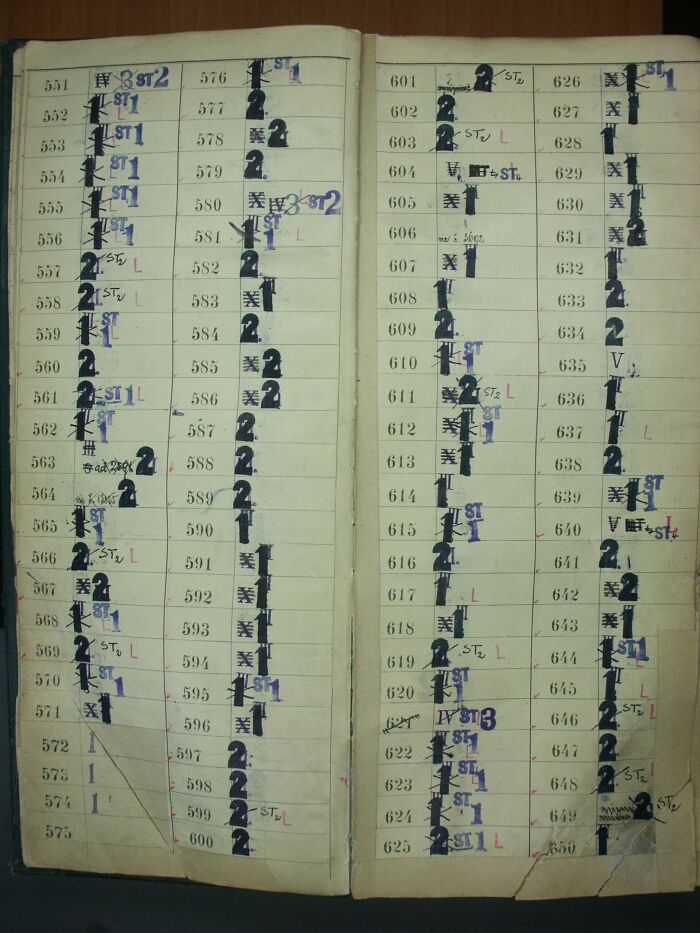 551 IV 3 ST2
552 1 ST1 L
553 1 ST1 L
554 1 ST1 L
555 1 ST1 L
556 1 ST1 L
557 2 ST2 L
558 2 ST2 L
559 1 ST1 L
560 2
561 2 ST1 L
562 1 ST1
563 2
564 2
565 1 ST1
566 2 ST2 L
567 X 2
568 1 ST1 L
569 2 ST2 L
570 1 ST1
571 X 1
572 1
573 1
574 1
575
576 1 ST1
577 2
578 X 2
579 2
580 X IV 3 ST2 L
581 1 ST1 L
582 2
583 X 1
584 2
585 X 2
586 X 2
587 2
588 2
589 2
590 1
591 X 1
592 X 1
593 X 1
594 X 1
595 1 ST1
596 X 1
597 2
598 2
599 2 ST2 L
600 2
601 2 ST2
602 2
603 2 ST2 L
604 V ST4 L
605 X 1
606
607 X 1
608 1
609 2
610 1 ST1
611 X 2 ST2 L
612 X 1 ST1
613 X 1
614 1
615 1 ST1
616 2
617 1 L
618 X 1
619 2 ST2 L
620 1 ST1
621 IV ST3 L
622 1 ST1 L
623 1 ST1 L
624 1 ST1
625 2 ST1 L
626 X 1 ST1
627 X 1
628 1
629 X 1
630 X 1
631 X 2
632 1
633 2
634 2
635 V
636 1
637 1 L
638 2
639 X 1 ST1
640 V ST4 L
641 2
642 X 2
643 X 1
644 1 ST1 L
645 1 L
646 2 ST2 L
647 2
648 2 ST2 L
649 2 ST2
650 1